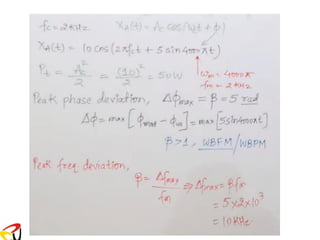 fc = 2 KHz   XA(t) = Ac cos(ωct + φ)
XA(t) = 10 cos(2πfct + 5 sin 4000πt)
Pt = Ac²/2 = (10)²/2 = 50W
ωm = 4000π
fm = 2 KHz
Peak phase deviation, Δφmax = β = 5 rad
Δφ = max[φ - φ] = max[5 sin 4000πt]
β>1, WBFM/WBPM
Peak freq. deviation,
β = Δfmax/fm ⇒ Δfmax = βfm
= 5x2x10³
= 10 KHz